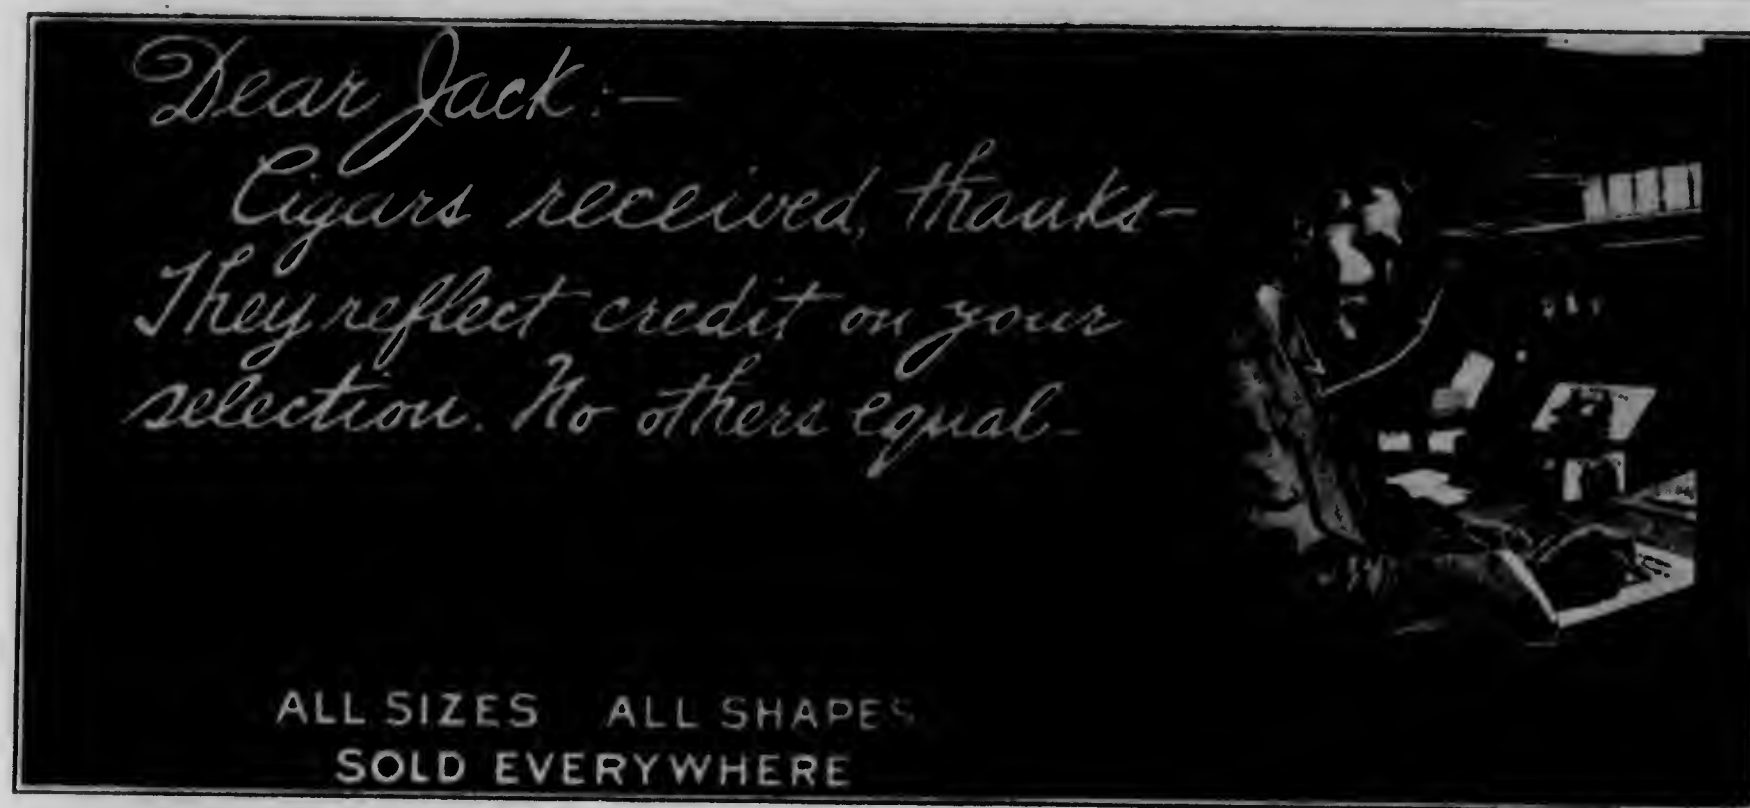 Dear Jack:—
Cigars received, thanks—
They reflect credit on your
selection. No others equal—
ALL SIZES ALL SHAPES
SOLD EVERYWHERE